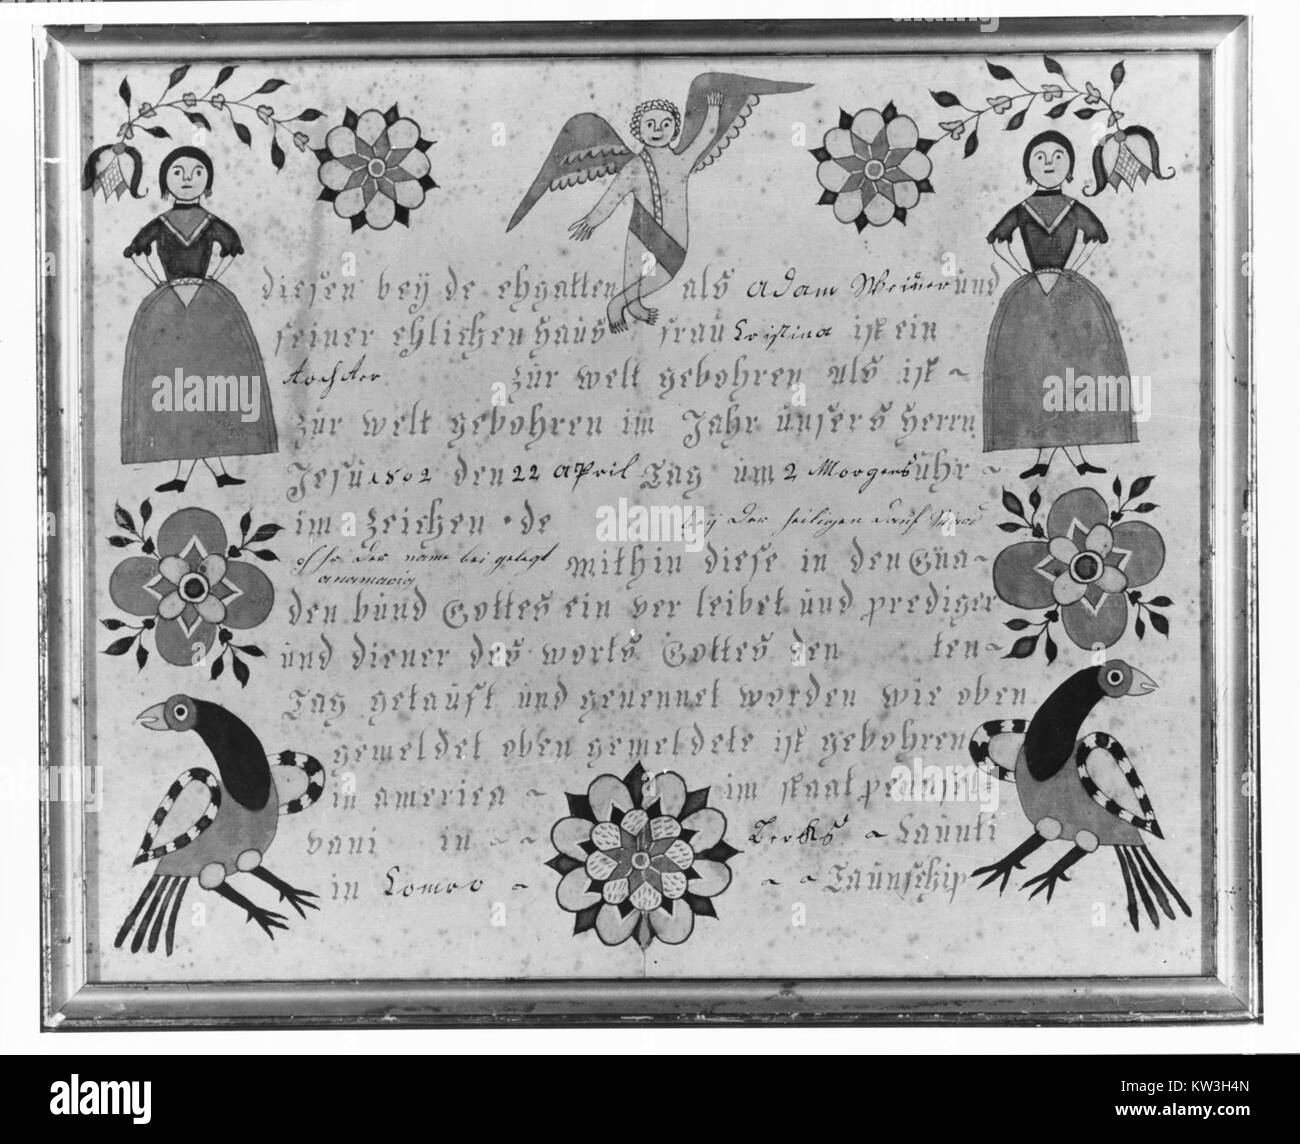 diesen beÿ de ehgatten als Adam Weiner und
seiner ehlichen Haus frau Cristina ist ein
Tochter zur welt gebohren als ist ~
zur welt gebohren im Jahr unsers Herrn
Jesu 1802 den 22 April Tag um 2 Morgens uhr ~
im zeichen de bey der heiligen Tauf
ihr der name bei gelegt mithin diese in den Gna~
anamaria
den bund Gottes ein ver leibet und prediger
und diener des worts Gottes den ten~
Tag getauft und genennet worden wie oben
gemeldet oben gemeldete ist gebohren
in america ~ im staat pennsel=
vani in ~ ~ Berks ~ Caunti
in Comro ~ ~ ~ Taunschip
alamy
Image ID: KW3H4N
www.alamy.com